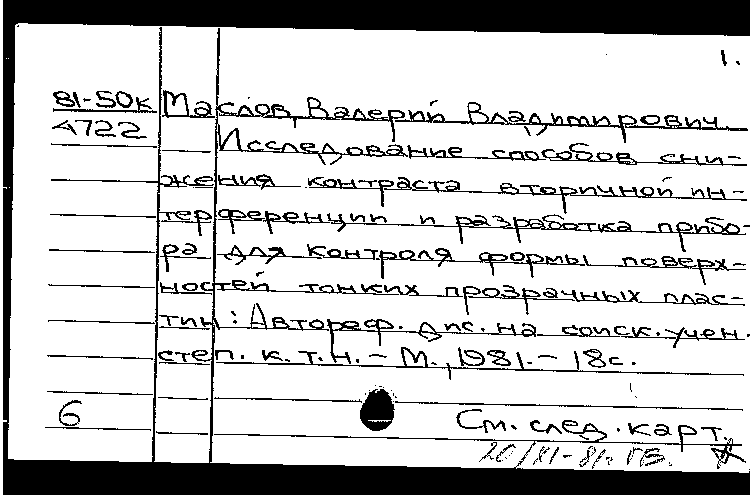 1.
81-50к Маслов, Валерий Владимирович
4722 Исследование способов сни-
жения контраста вторичной ин-
терференции и разработка прибо-
ра для контроля формы поверх-
ностей тонких прозрачных плас-
тин: Автореф. дис. на соиск. учен.
степ. к. т. н. – М., 1981. – 18с.
6 См. след. карт.
20/XI-81г. ГВ.